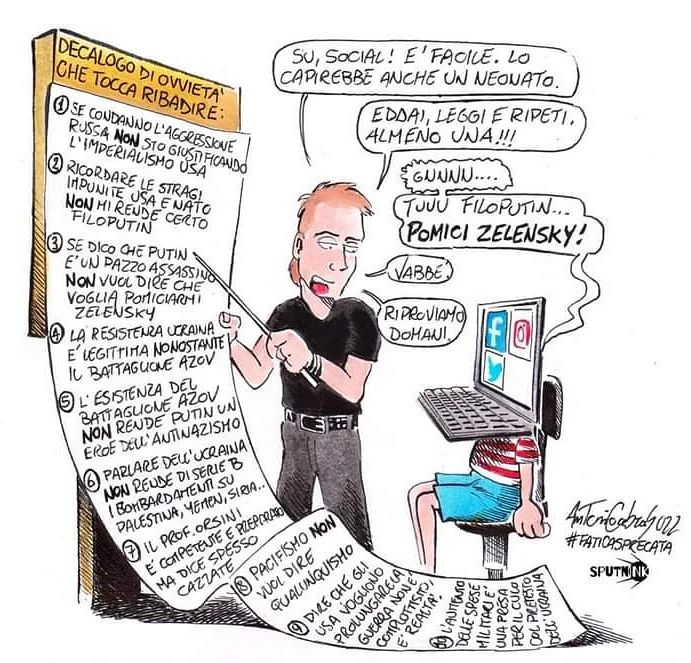 DECALOGO DI OVVIETA'
CHE TOCCA RIBADIRE:
① SE CONDANNO L'AGGRESSIONE
RUSSA NON STO GIUSTIFICANDO
L'IMPERIALISMO USA
② RICORDARE LE STRAGI
IMPUNITE USA E NATO
NON MI RENDE CERTO
FILOPUTIN
③ SE DICO CHE PUTIN
E' UN PAZZO ASSASSINO
NON VUOL DIRE CHE
VOGLIA POMICIARMI
ZELENSKY
④ LA RESISTENZA UCRAINA
E' LEGITTIMA NONOSTANTE
IL BATTAGLIONE AZOV
⑤ L'ESISTENZA DEL
BATTAGLIONE AZOV
NON RENDE PUTIN UN
EROE DELL'ANTINAZISMO
⑥ PARLARE DELL'UCRAINA
NON RENDE DI SERIE B
I BOMBARDAMENTI SU
PALESTINA, YEMEN, SIRIA..
⑦ IL PROF. ORSINI
E' COMPETENTE E PREPARATO
MA DICE SPESSO
CAZZATE
⑧ PACIFISMO NON
VUOL DIRE
QUALUNQUISMO
⑨ DIRE CHE GLI
USA VOGLIONO
PROLUNGARE LA
GUERRA NON E'
COMPLOTTISTO,
E' REALTA'.
⑩ L'AUMENTO
DELLE SPESE
MILITARI E'
UNA PRESA
PER IL CULO
COL PRETESTO
DELL'UCRAINA
SU, SOCIAL! E' FACILE. LO
CAPIREBBE ANCHE UN NEONATO.
EDDAI, LEGGI E RIPETI.
ALMENO UNA!!!
GNNNN....
TUUU FILOPUTIN...
POMICI ZELENSKY!
VABBE'.
RIPROVIAMO
DOMANI.
#FATICASPRECATA
SPUTNINK